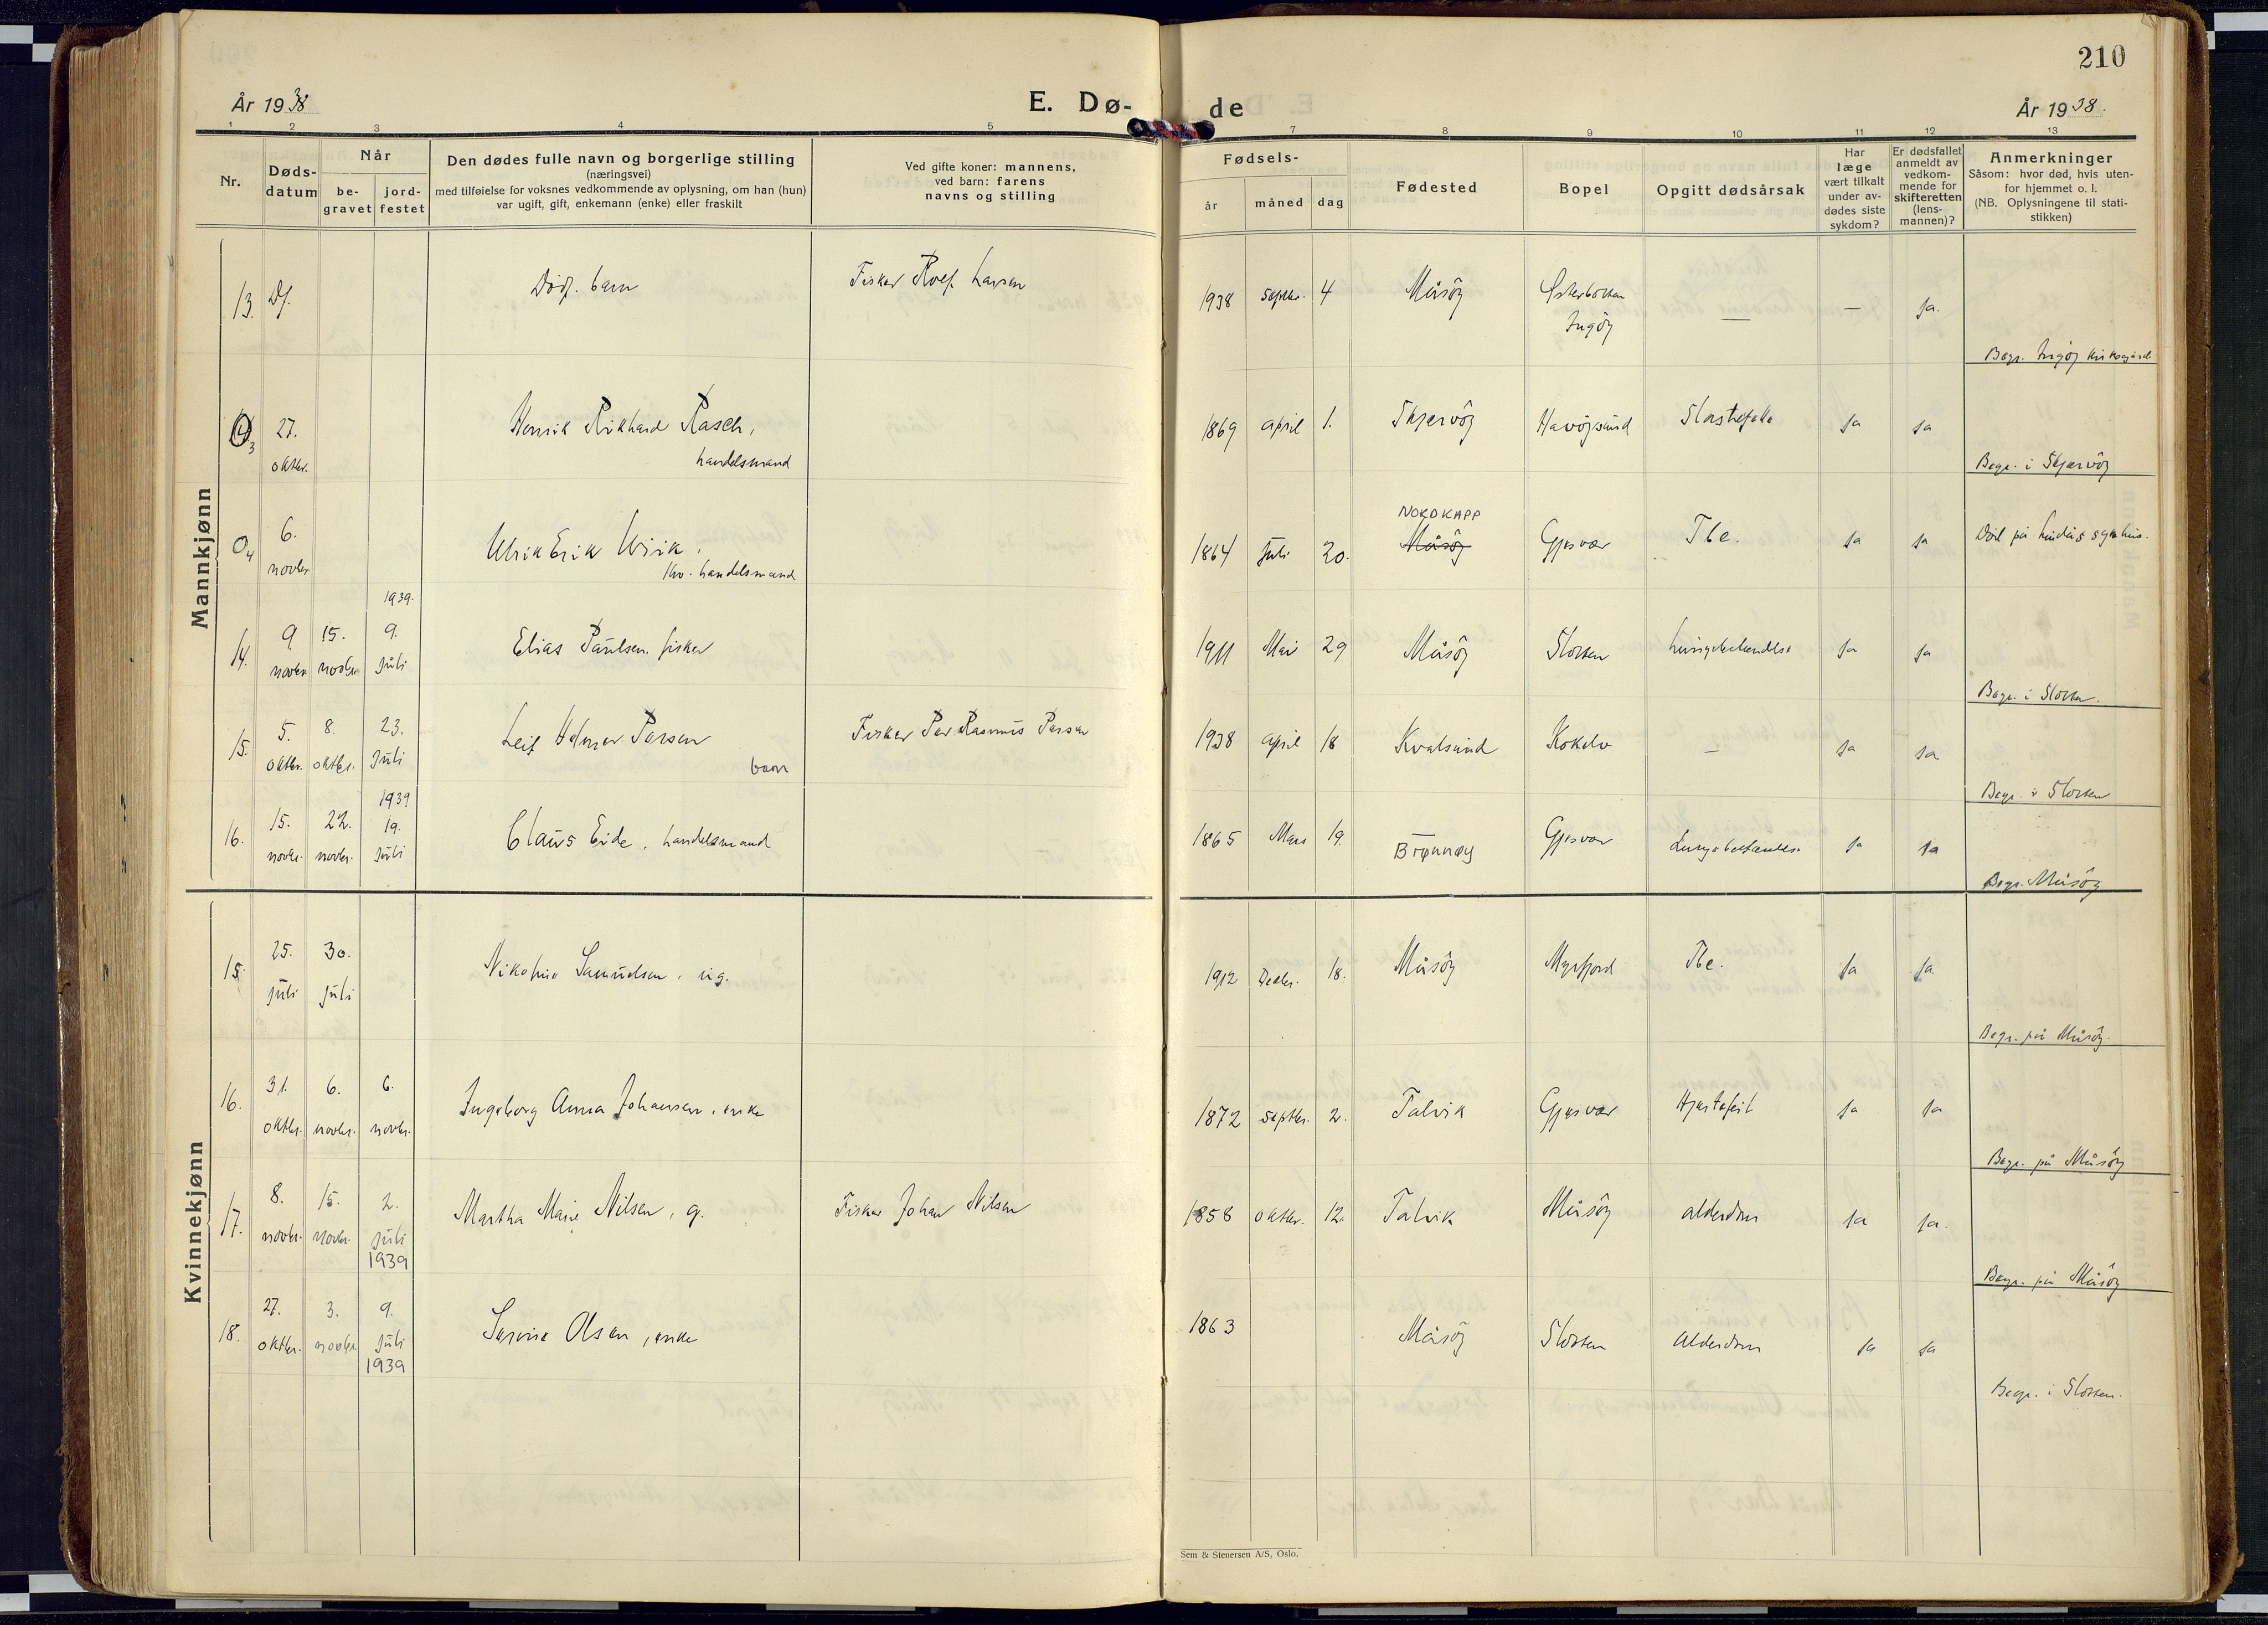 210
År 1938
E. Dø-
de
År 1938.
1 2 3 4 5 7 8 9 10 11 12 13
Nr.
Døds-
datum
Når
be-
gravet
jord-
festet
Den dødes fulle navn og borgerlige stilling
(næringsvei)
med tilføielse for voksnes vedkommende av oplysning, om han (hun)
var ugift, gift, enkemann (enke) eller fraskilt
Ved gifte koner: mannens,
ved barn: farens
navns og stilling
Fødsels-
år måned dag
Fødested
Bopel
Opgitt dødsårsak
Har
læge
vært tilkalt
under av-
dødes siste
sykdom?
Er dødsfallet
anmeldt av
vedkom-
mende for
skifteretten
(lens-
mannen)?
Anmerkninger
Såsom: hvor død, hvis uten-
for hjemmet o. l.
(NB. Oplysningene til stati-
stikken)
Mannkjønn
13. Df. Dödf. barn Fisker Rolf Larsen 1938 septbr. 4 Måsöy
Ingöy — — ja.
Begr. Ingöy kirkegård
O3 27. Henrik Rikhard Rasch, 1869 april 1. Skjervöy Havöysund ja ja
oktbr. handelsmand
Begr. i Skjervöy
O4 6. Ulrik Erik Wiik, 1864 juli 20. NORDKAPP Måsöy Gjesvær Tbc. ja ja
novbr. fhv. handelsmand
1939.
14. 9 15. 9. Elias Paulsen, fisker 1911 Mai 29 Måsöy Slotten Lungebetendelse ja ja
novbr. novbr. juli
Begr. i Slotten.
15. 5. 8. 23. Leif Helmer Persen Fisker Per Rasmus Persen 1938 april 18 Kvalsund Kokelv — ja ja
oktbr. oktbr. juli barn
Begr. i Slotten
1939
16. 15. 22. 19. Claus Eide, handelsmand 1865 Mars 19. Brønnøy Gjesvær Lungebetendelse ja ja
novbr. novbr. juli
Begr. Måsöy
Kvinnekjønn
15. 25. 30. Nikoline Samuelsen, ug. 1912 Decbr. 18. Måsöy Myrfjord Tbc. ja ja.
juli juli
Begr. på Måsöy.
16. 31. 6. 6. Ingeborg Anna Johansen, enke 1872 septbr. 2. Talvik Gjesvær Hjertefeil ja ja
oktbr. novbr. novbr.
Begr. på Måsöy
17. 8. 15. 2. Martha Marie Nilsen, g. Fisker Johan Nilsen 1858 oktbr. 12. Talvik Måsöy alderdom ja ja.
novbr. novbr. juli
1939
Begr. på Måsöy
18. 27. 3. 9. Olsen, enke 1863 Måsöy Slotten alderdom ja ja
oktbr. novbr. juli
1939
Begr. i Slotten.
Sem & Stenersen A/S, Oslo.